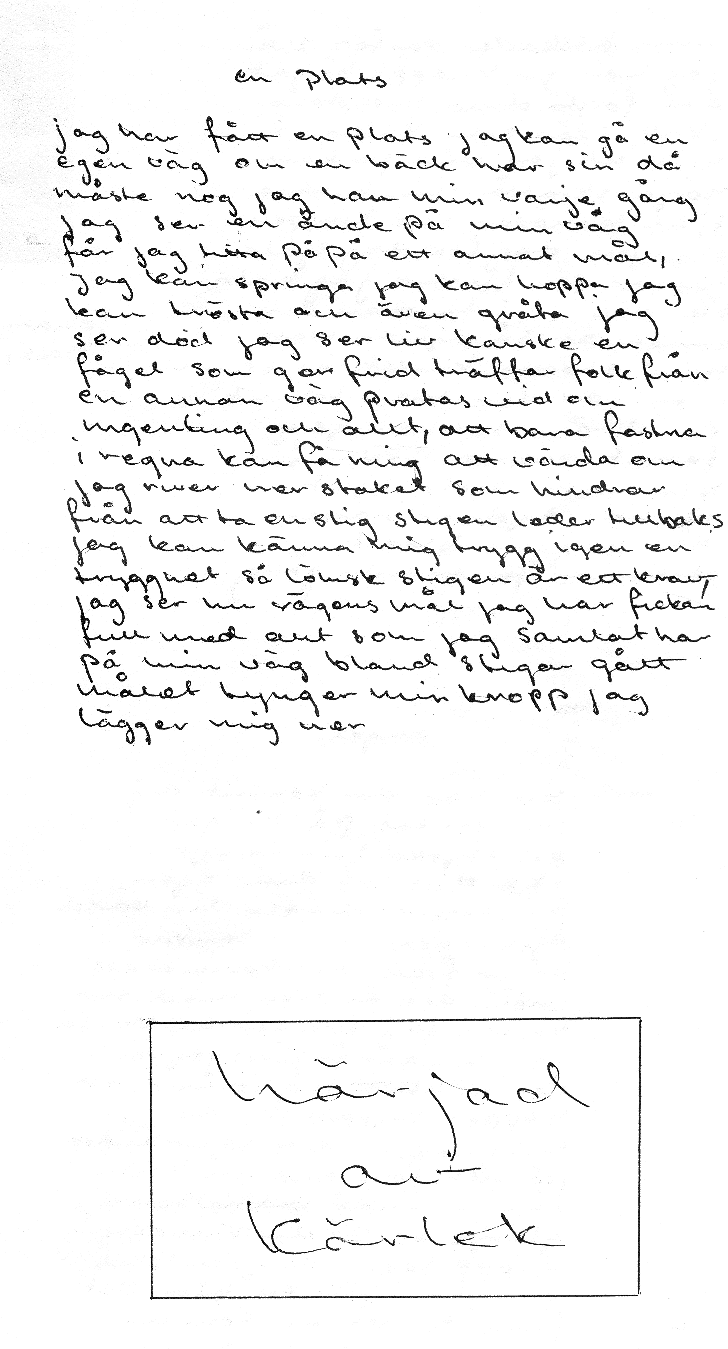 en plats
jag har fått en plats jag kan gå en
egen väg om en bäck har sin då
måste nog jag han min varje gång
jag ser en ände på min väg
får jag hitta på på ett annat mål,
jag kan springa jag kan hoppa jag
kan trösta och även gråta jag
ser död jag ser liv kanske en
fågel som ger frid träffar folk från
en annan väg pratas vid om
ingenting och allt, att bara fastna
i regna kan få mig att vända om
jag river ner staket som hindrar
från att ta en stig stigen leder tillbaks
jag kan känna mig trygg igen en
trygghet så lömsk stigen är ett krav,
jag ser nu vägens mål jag har fickan
full med allt som jag samlat har
på min väg bland stigar gått
målet tynger min kropp jag
lägger mig ner
härjad
av
kärlek